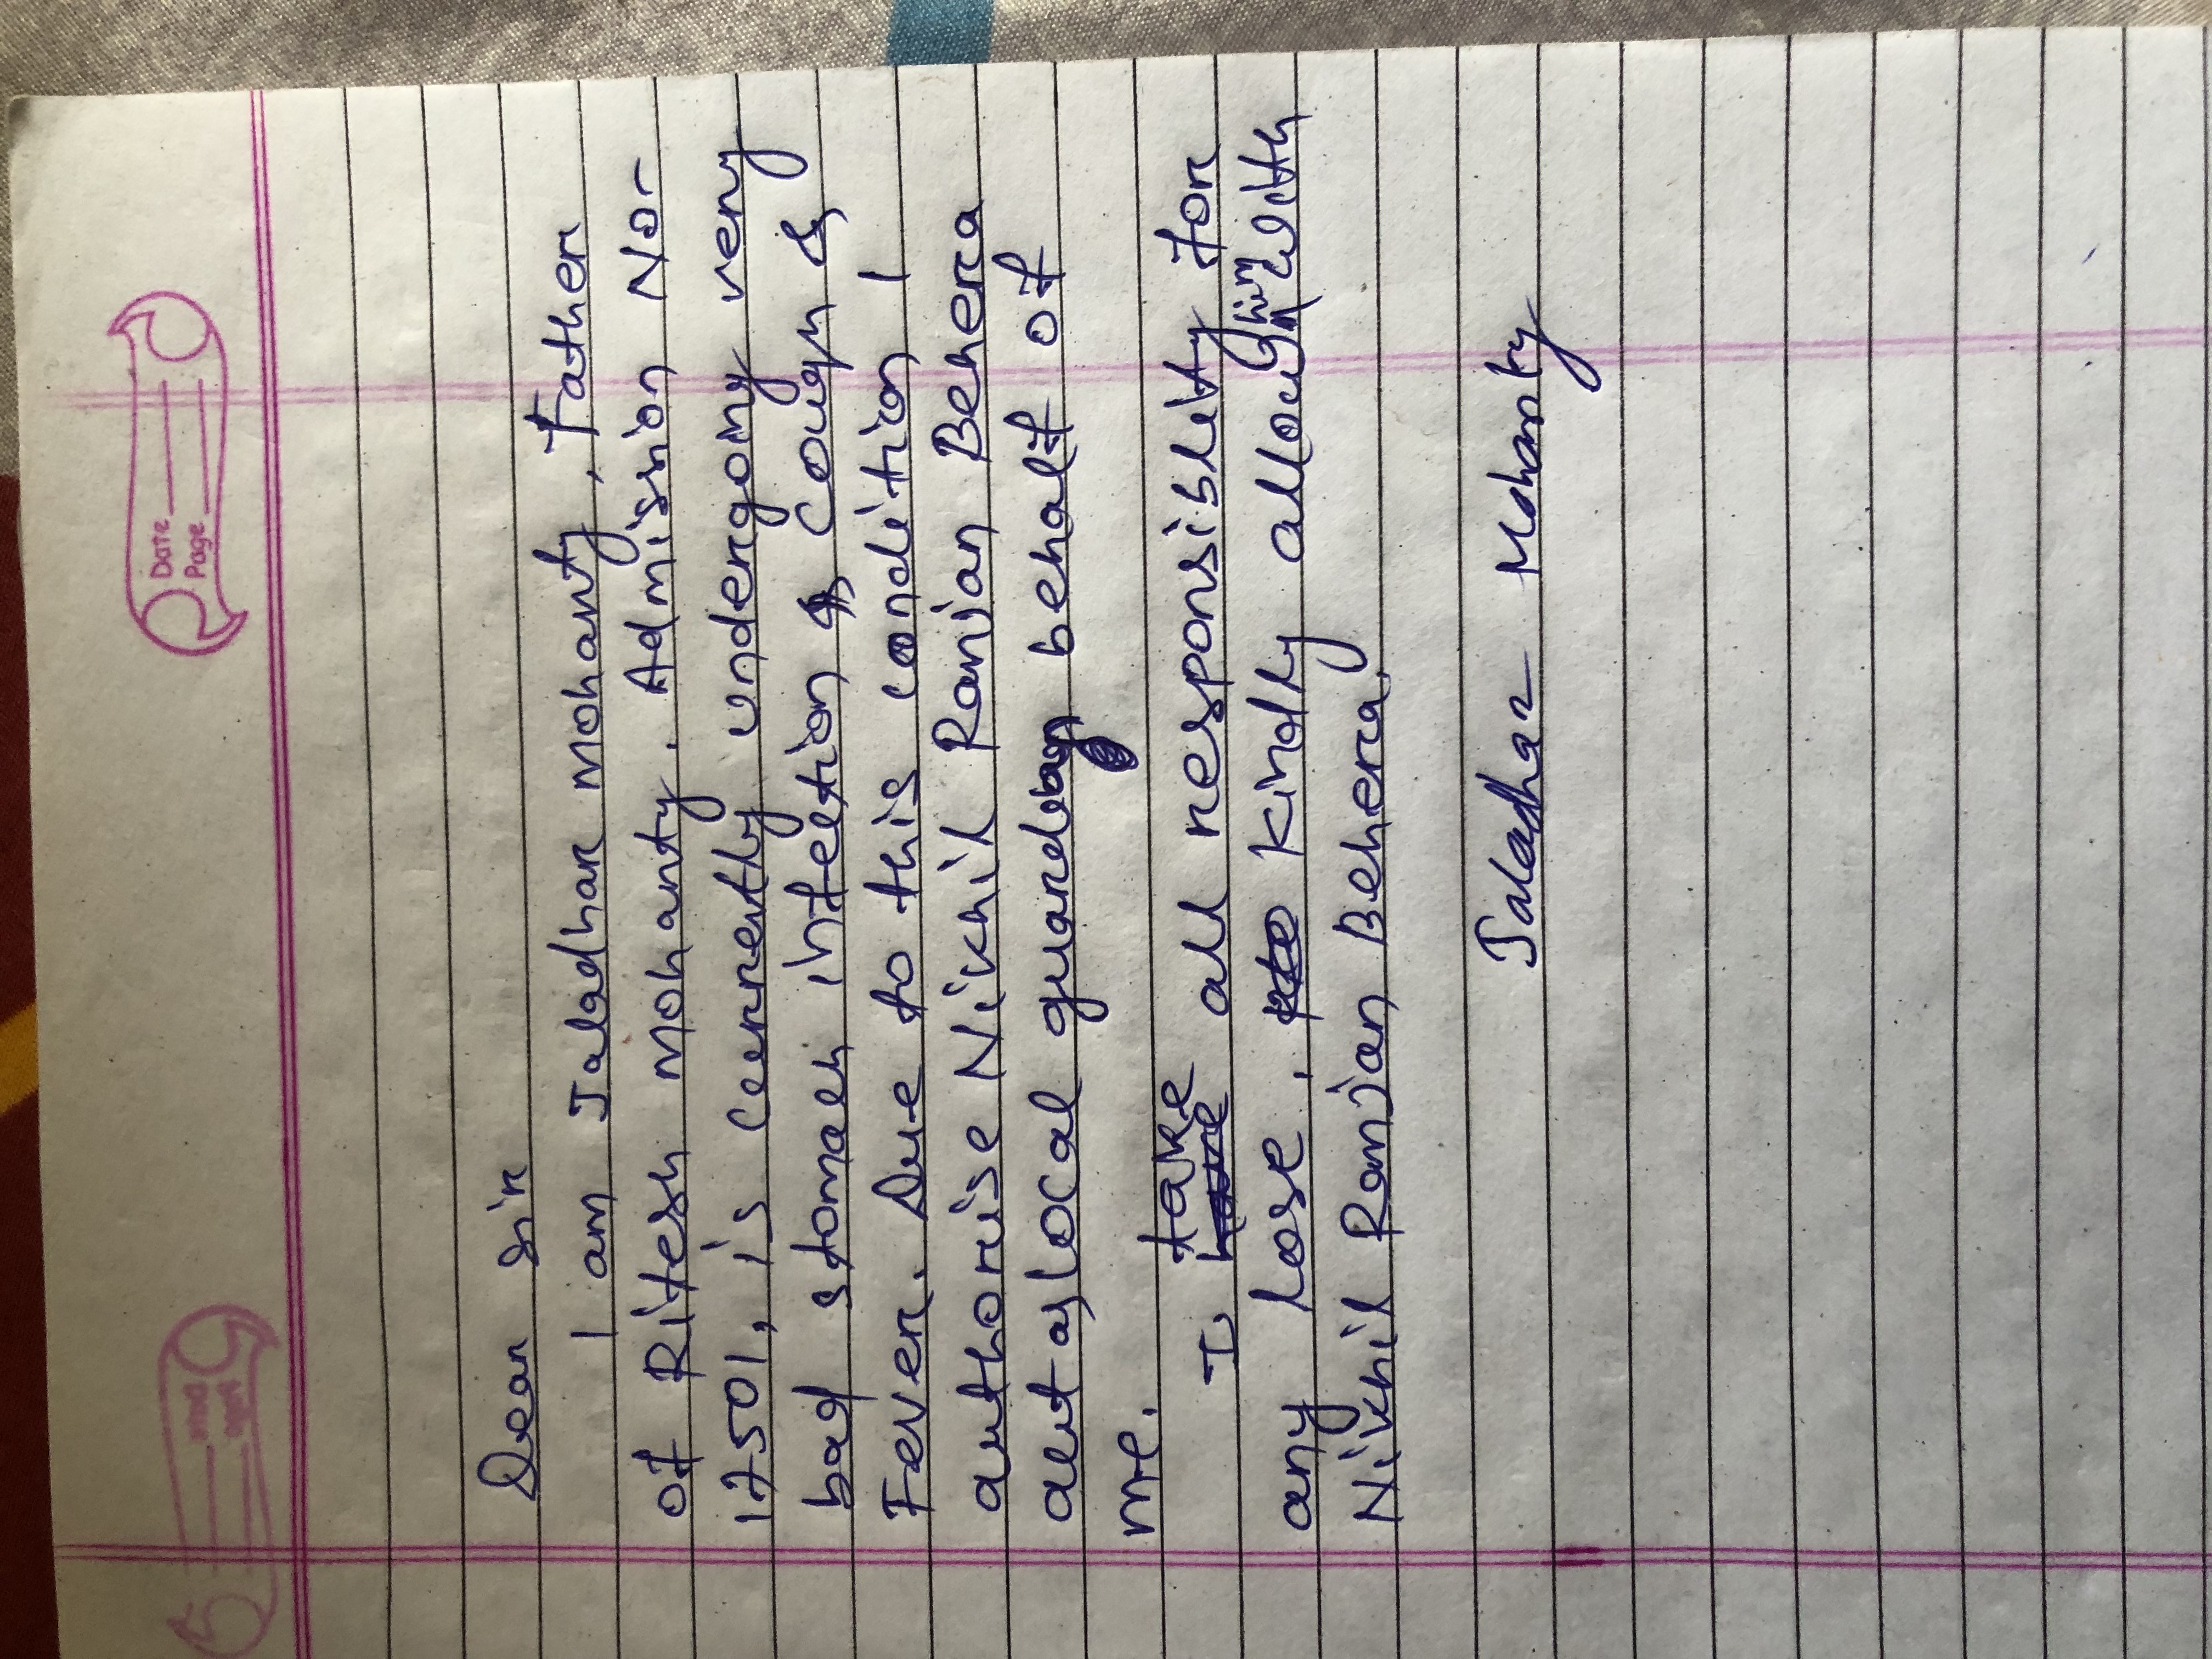 Date
Page
Dear sir
I am Jaladhar Mohanty, Father
of Ritesh Mohanty. Admission No-
17501, is currently undergoing very
bad stomach infection & Cough &
Fever. Due to this condition I
authorise Nikhil Ranjan Behera
act as local behalf of
me.
I take all responsiblety for
any lose. kindly allow him with
Nikhil Ranjan Behera.
Jaladhar Mohanty